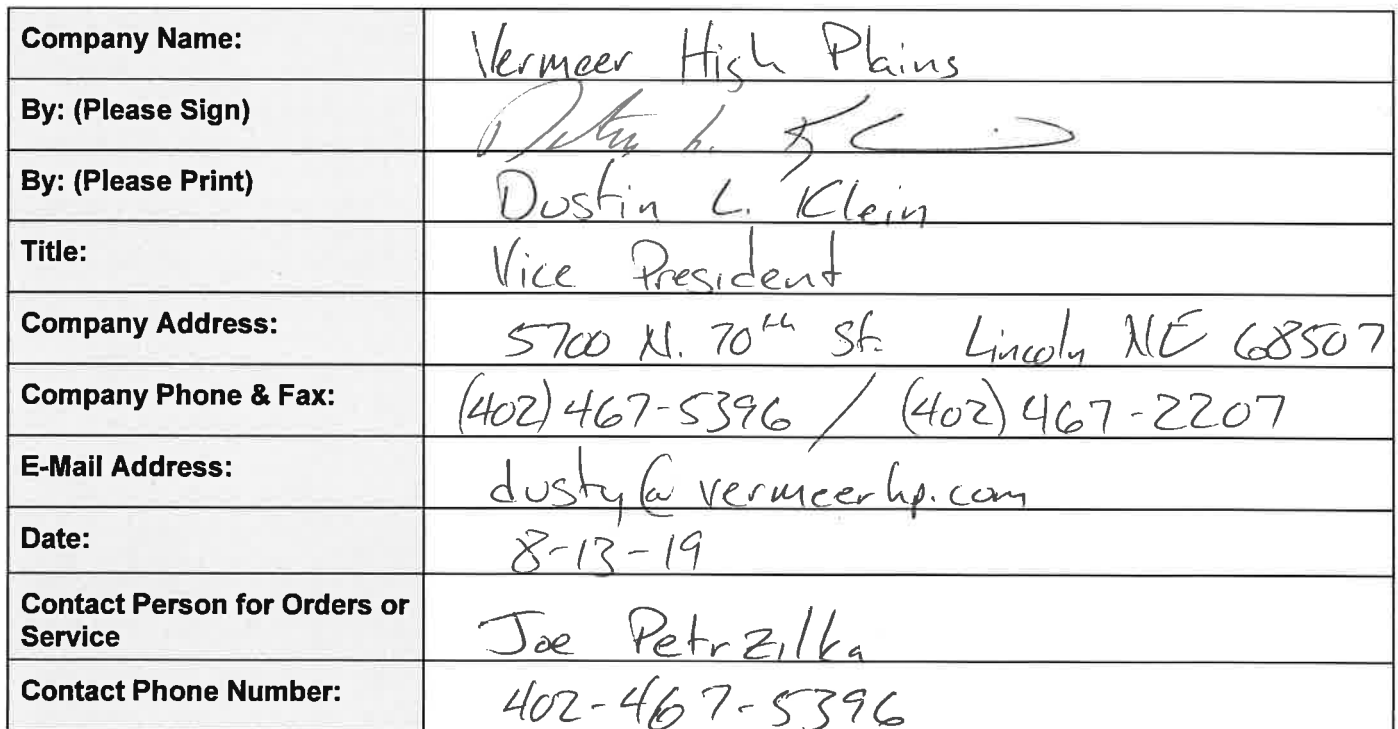 Company Name: Vermeer High Plains
By: (Please Sign)
By: (Please Print) Dustin L. Klein
Title: Vice President
Company Address: 5700 N. 70th St. Lincoln NE 68507
Company Phone & Fax: (402) 467-5396 / (402) 467-2207
E-Mail Address: dusty@vermeerhp.com
Date: 8-13-19
Contact Person for Orders or
Service Joe Petrzilka
Contact Phone Number: 402-467-5396